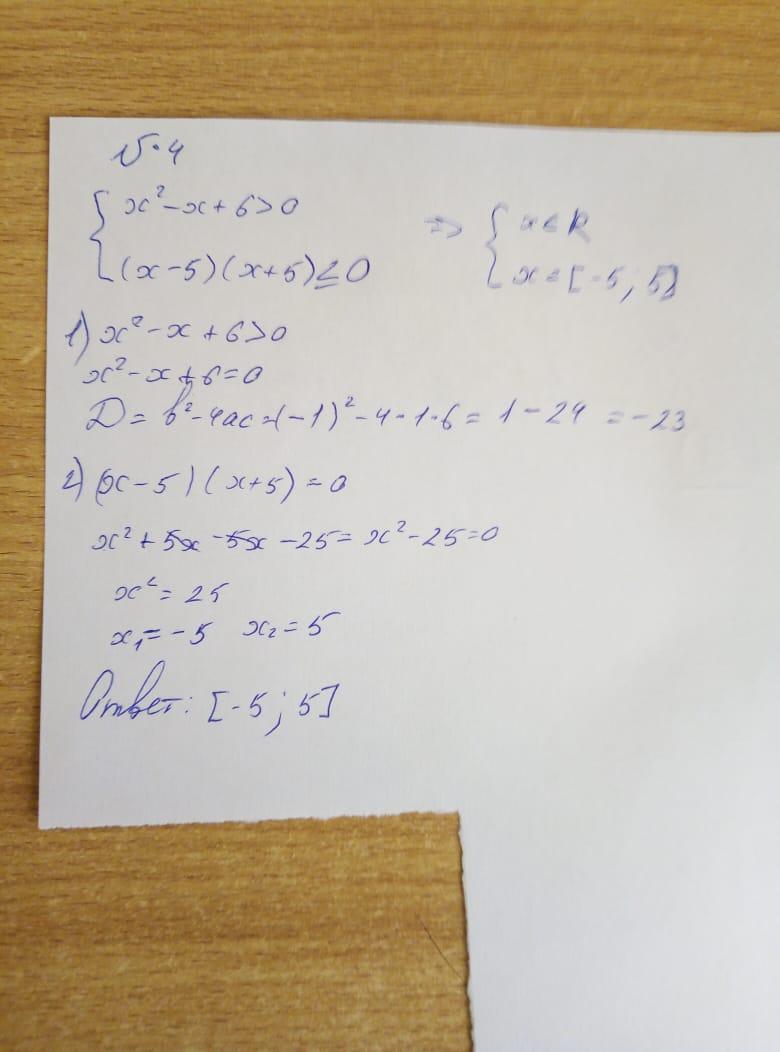 №4
{ x² - x + 6 > 0 => { x ∈ R
(x - 5)(x + 5) ≤ 0 x = [-5; 5]
1) x² - x + 6 > 0
x² - x + 6 = 0
D = b² - 4ac = (-1)² - 4 · 1 · 6 = 1 - 24 = -23
2) (x - 5)(x + 5) = 0
x² + 5x - 5x - 25 = x² - 25 = 0
x² = 25
x₁ = -5 x₂ = 5
Ответ: [-5; 5]